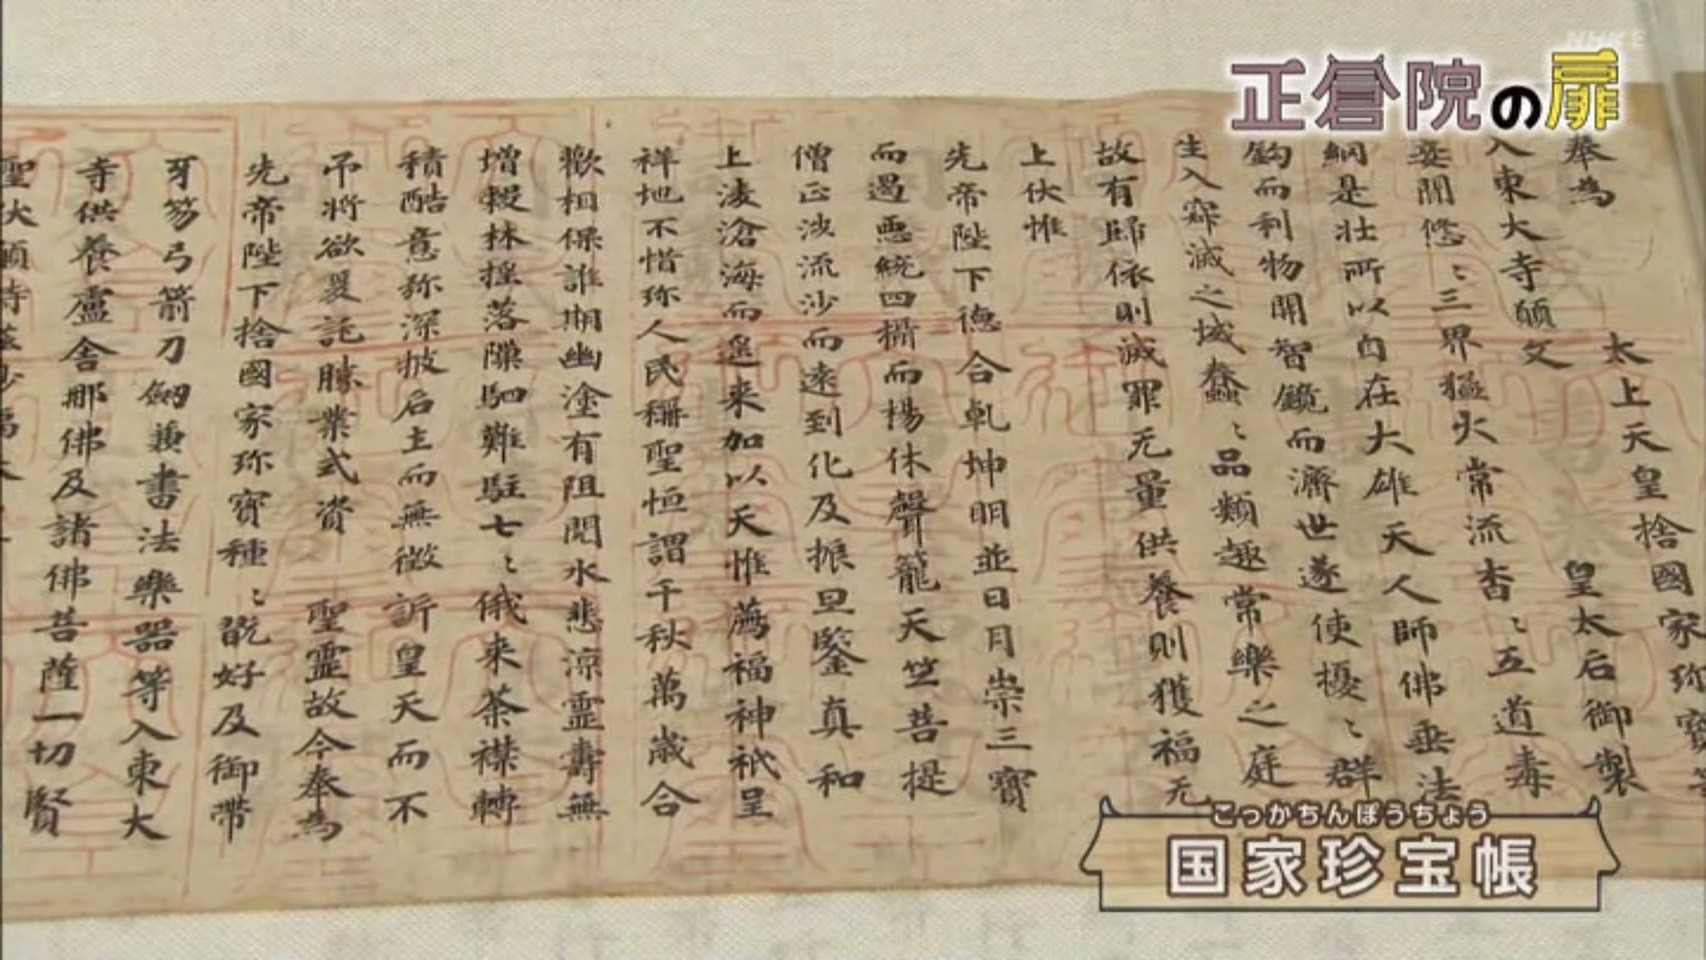 NHKE
正倉院の扉
奉為
太上天皇捨國家珍寶等
入東大寺願文
皇太后御製
妾聞悠々三界猛火常流杳々五道毒
網是壮所以自在大雄天人師佛垂法
鈎而利物開智鏡而濟世遂使擾々群
生入寂滅之域蠢々品類趣常樂之庭
故有歸依則滅罪无量供養則獲福无
上伏惟
先帝陛下德合乹坤明並日月崇三寶
而遏惡統四攝而楊休聲籠天竺菩提
僧正涉流沙而遠到化及振旦鑒真和
上凌滄海而遥来加以天惟薦福神祇呈
祥地不惜珎人民稱聖恒謂千秋萬歲合
歡相保誰期幽塗有阻閱水悲涼靈壽無
增糓林揺落隟駟難駐七々俄来荼襟轉
積酷意弥深披后土而無徵訴皇天而不
吊將欲爰託勝業式資聖靈故今奉為
先帝陛下捨國家珎寶種々翫好及御帶
牙笏弓箭刀劔兼書法樂器等入東大
寺供養盧舍那佛及諸佛菩薩一切賢
聖伏願持茲妙
こっかちんぽうちょう
国家珍宝帳